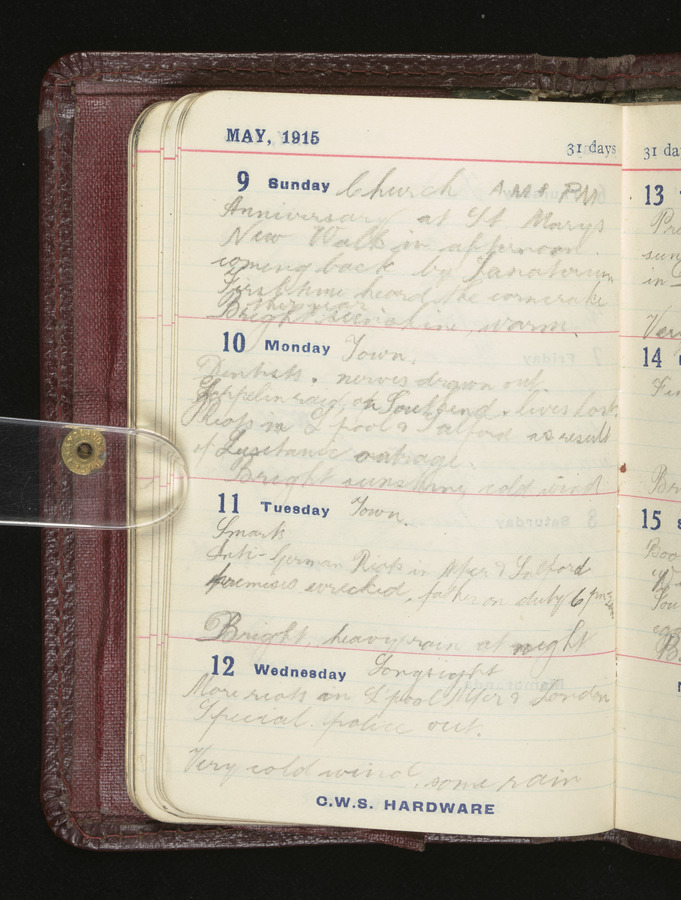 MAY, 1915 31 days
9 Sunday Church A M & P M
Anniversary at St. Marys
New Walk in afternoon
coming back by Sanatorium
First time heard the corncrake
this year
Bright sunshine, warm.
10 Monday Town.
Dentists. nerves drawn out.
Zeppelin raid, on Southend. lives lost.
Riots in L'pool & Salford as result
of Lusitania outrage.
Bright sunshine, cold wind
11 Tuesday Town.
Smarts
Anti-German Riots in M/cr & Salford
premises wrecked, father on duty 6
Bright, heavy rain at night
12 Wednesday Longsight
More riots in L'pool M/cr & London
Special police out.
Very cold wind, some rain
C.W.S. HARDWARE
31 da
13
Pre
sun
in
Ver
14
Fin
Br
15 S
Boo
You
B